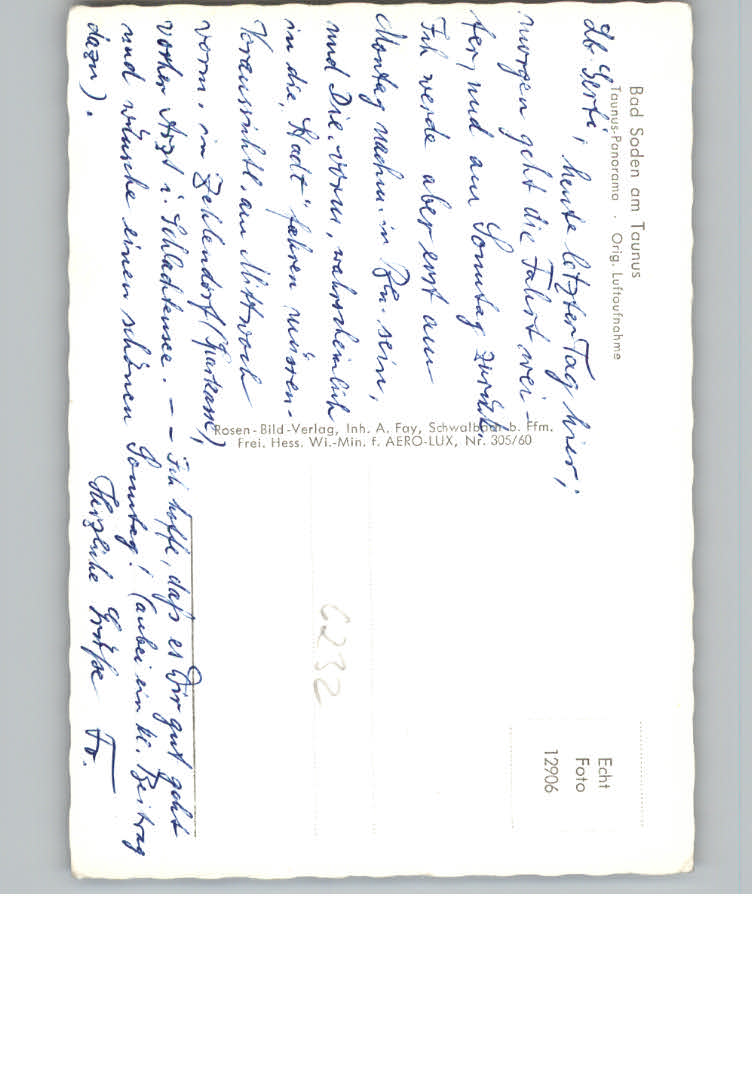 Bad Soden am Taunus
Taunus-Panorama · Orig. Luftaufnahme
Lb. Gerti, heute letzter Tag hier;
morgen geht die Fahrt wei-
ter, und am Sonntag zurück.
Ich werde aber erst am
Montag nachm. in Bln. sein,
und Die. vorm. wahrscheinlich
in die „Stadt" fahren müssen.
Voraussichtl. am Mittwoch
vorm. in Zehlendorf (Sparkasse),
vorher Arzt i. Schlachtensee. – – Ich hoffe, daß es Dir gut geht
und wünsche einen schönen Sonntag! (anbei ein kl. Beitrag
dazu).
Herzliche Grüße Fr.
Rosen-Bild-Verlag, Inh. A. Fay, Schwalbach b. Ffm.
Frei. Hess. Wi.-Min. f. AERO-LUX, Nr. 305/60
Echt
Foto
12906
6232